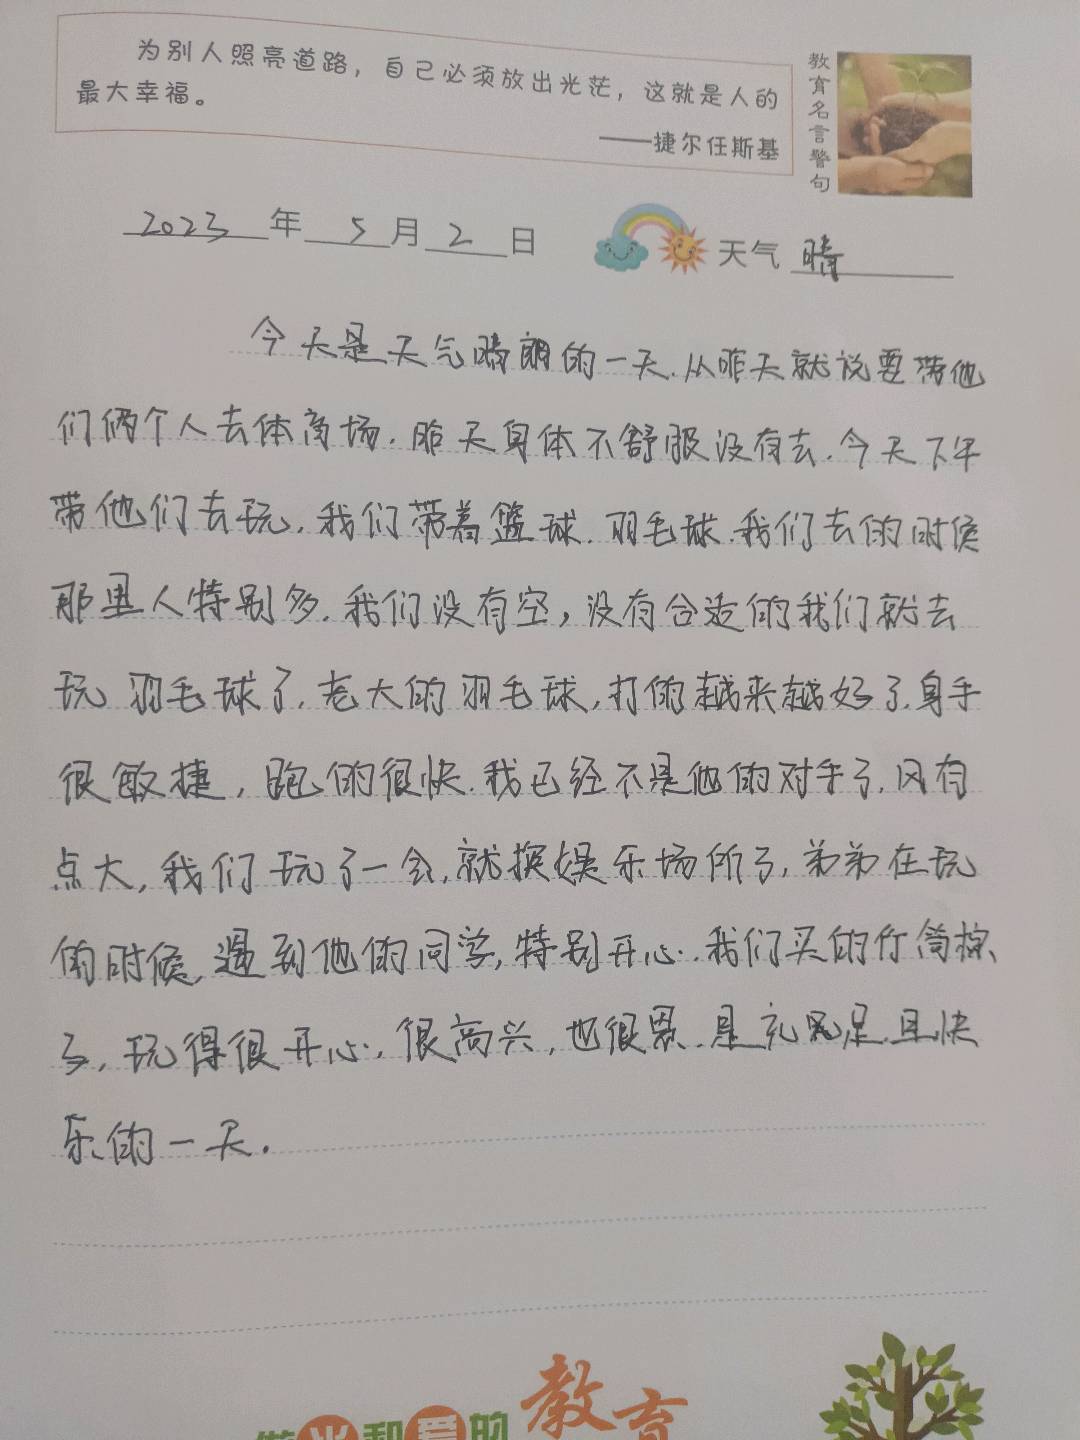 为别人照亮道路，自己必须放出光茫，这就是人的
最大幸福。
——捷尔任斯基
教育名言警句
2023年5月2日 天气 晴
今天是天气晴朗的一天.从昨天就说要带他
们俩个人去体育场.昨天身体不舒服没有去.今天下午
带他们去玩.我们带着篮球.羽毛球.我们去的时候
那里人特别多.我们没有空，没有合适的我们就去
玩羽毛球了.老大的羽毛球,打的越来越好了.身手
很敏捷，跑的很快.我已经不是他的对手了.风有
点大,我们玩了一会.就换娱乐场所了,弟弟在玩
的时候,遇到他的同学,特别开心.我们买的竹筒粽
子,玩得很开心,很高兴,也很累.是充满足且快
乐的一天.
做光和爱的教育